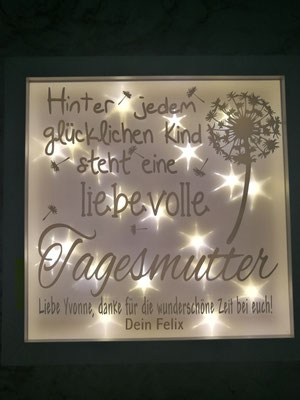 Hinter jedem
glücklichen Kind
steht eine
liebevolle
Tagesmutter
Liebe Yvonne, danke für die wunderschöne Zeit bei euch!
Dein Felix